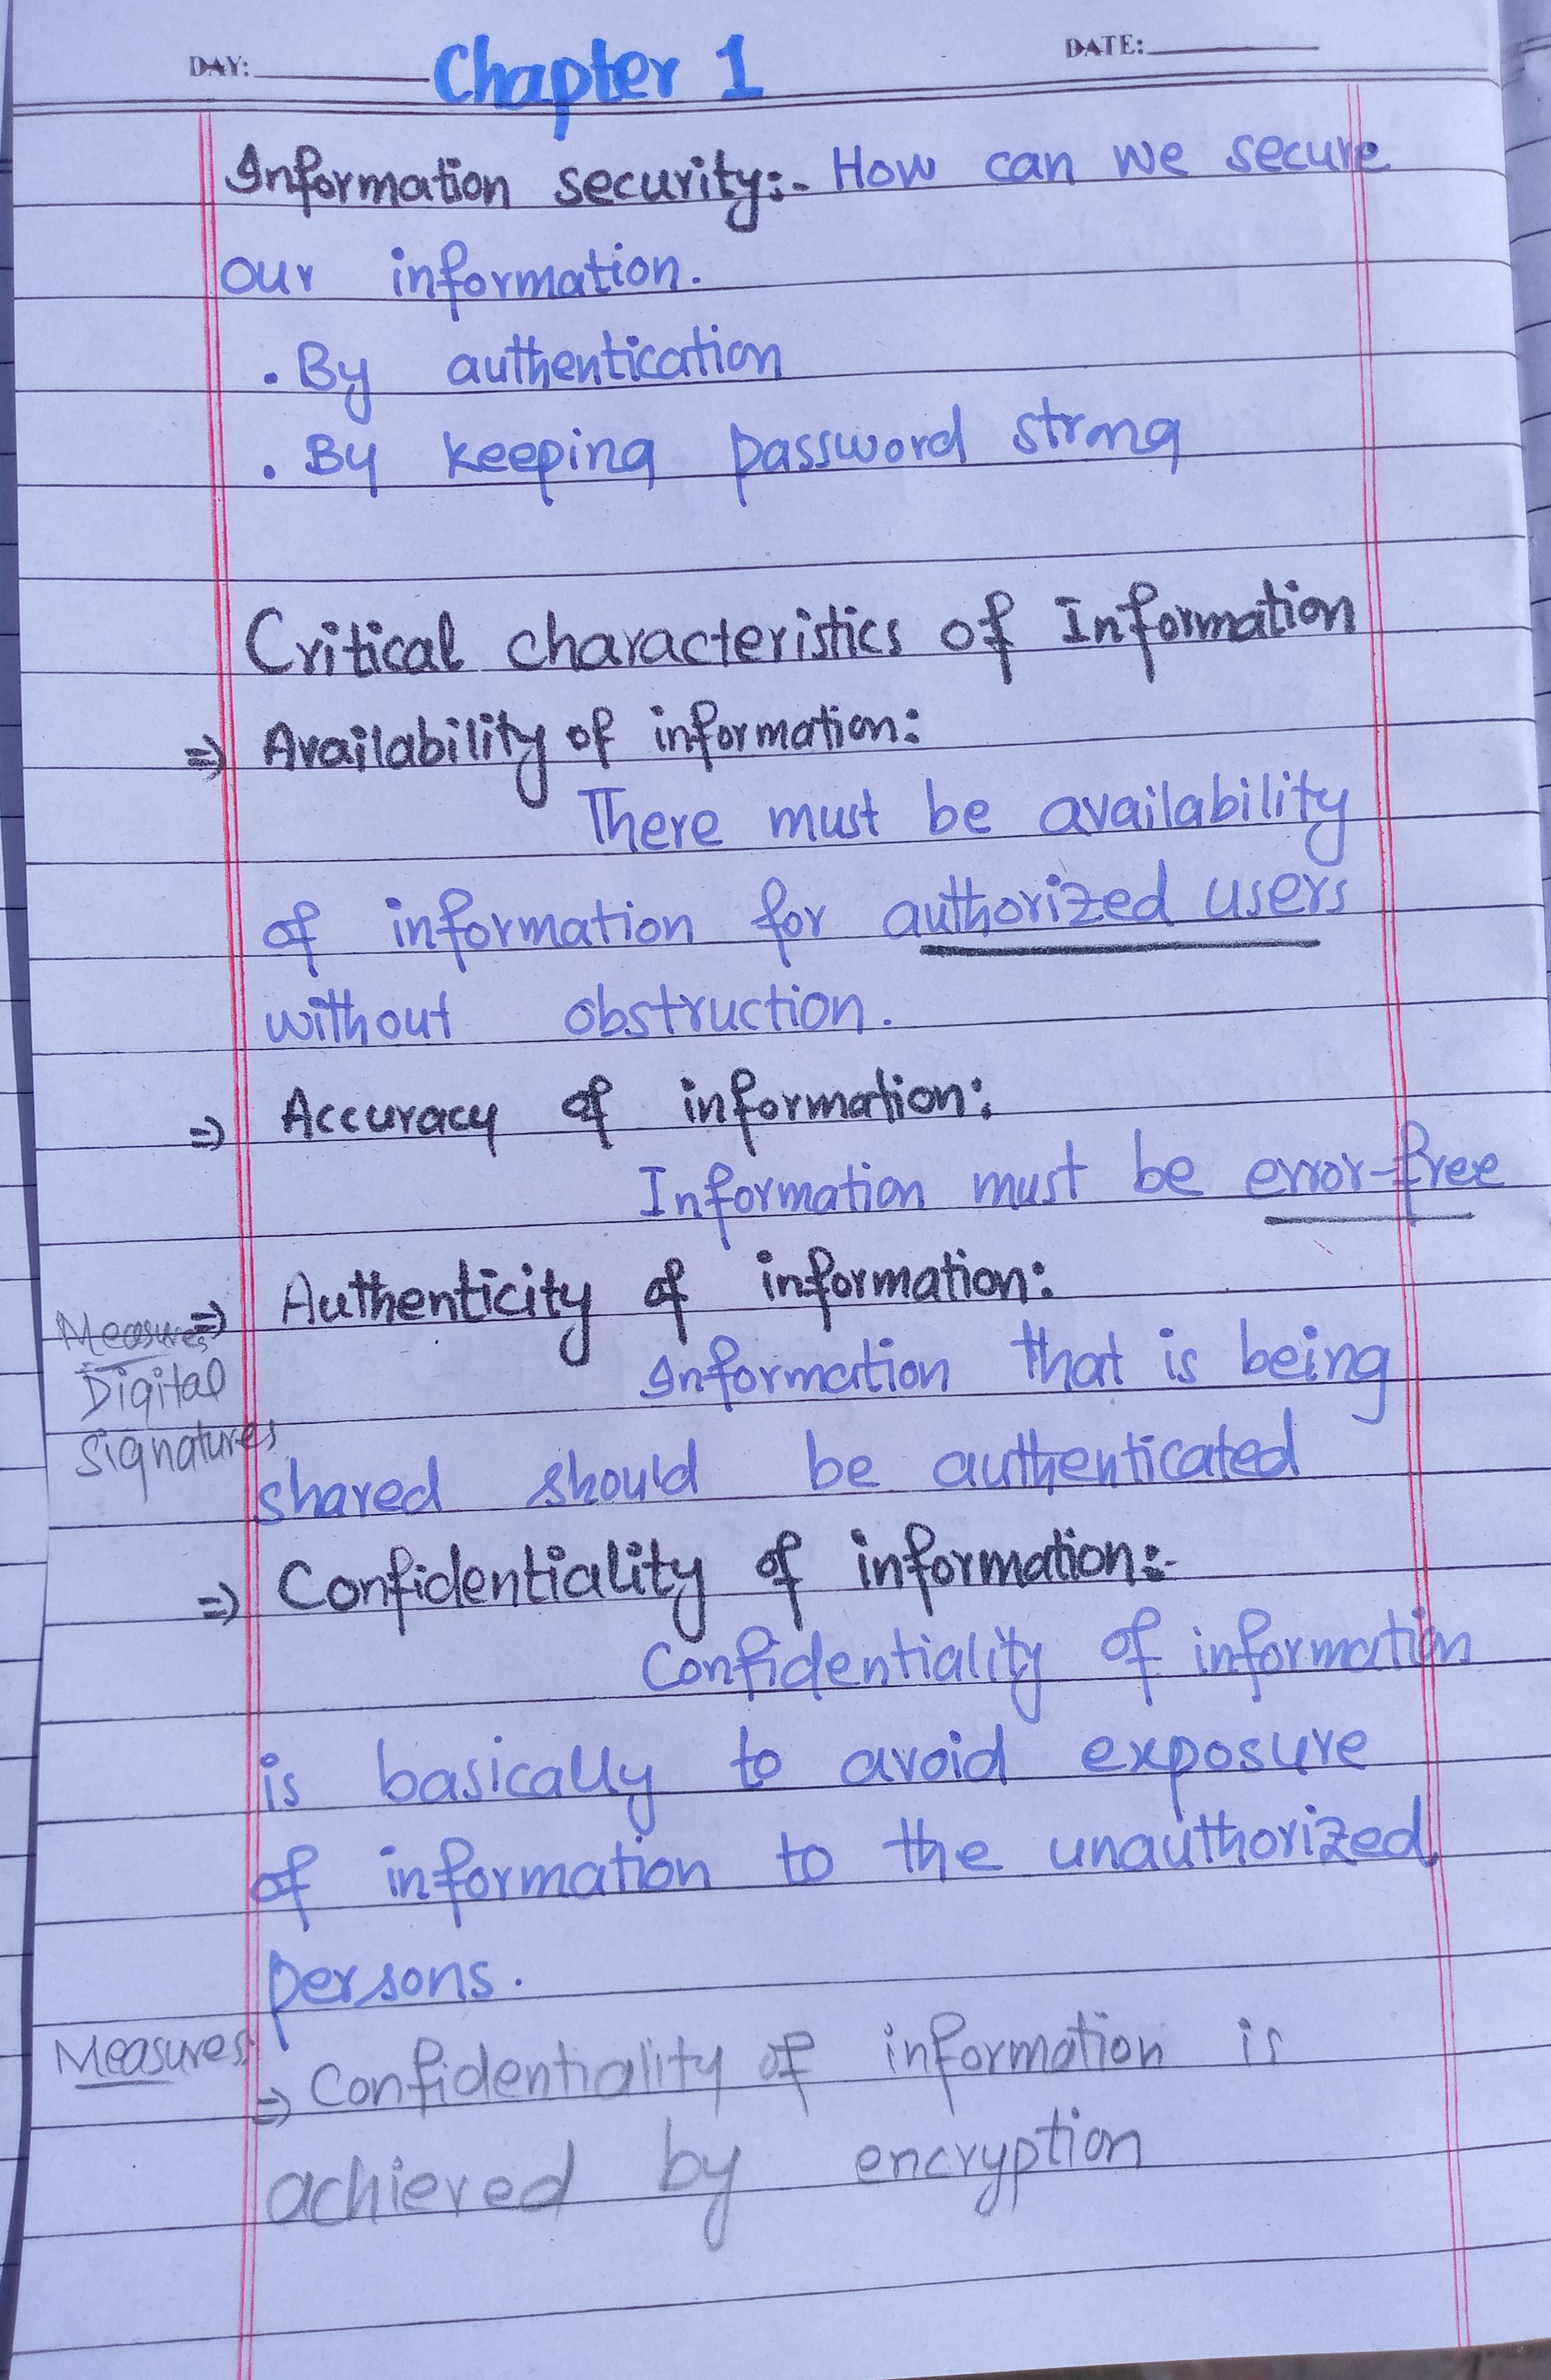 DAY: Chapter 1 DATE:
Information security:- How can we secure
our information.
. By authentication
. By keeping password strong
Critical characteristics of Information
⇒ Availability of information:
There must be availability
of information for authorized users
without obstruction.
⇒ Accuracy of information:
Information must be error-free
⇒ Authenticity of information:
Measures
Digital
Signatures
Information that is being
shared should be authenticated
⇒ Confidentiality of information:-
Confidentiality of information
is basically to avoid exposure
of information to the unauthorized
persons.
Measures
⇒ Confidentiality of information is
achieved by encryption